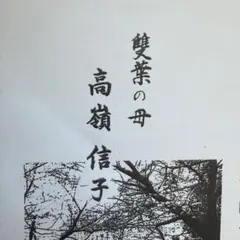 雙葉の母
高嶺信子